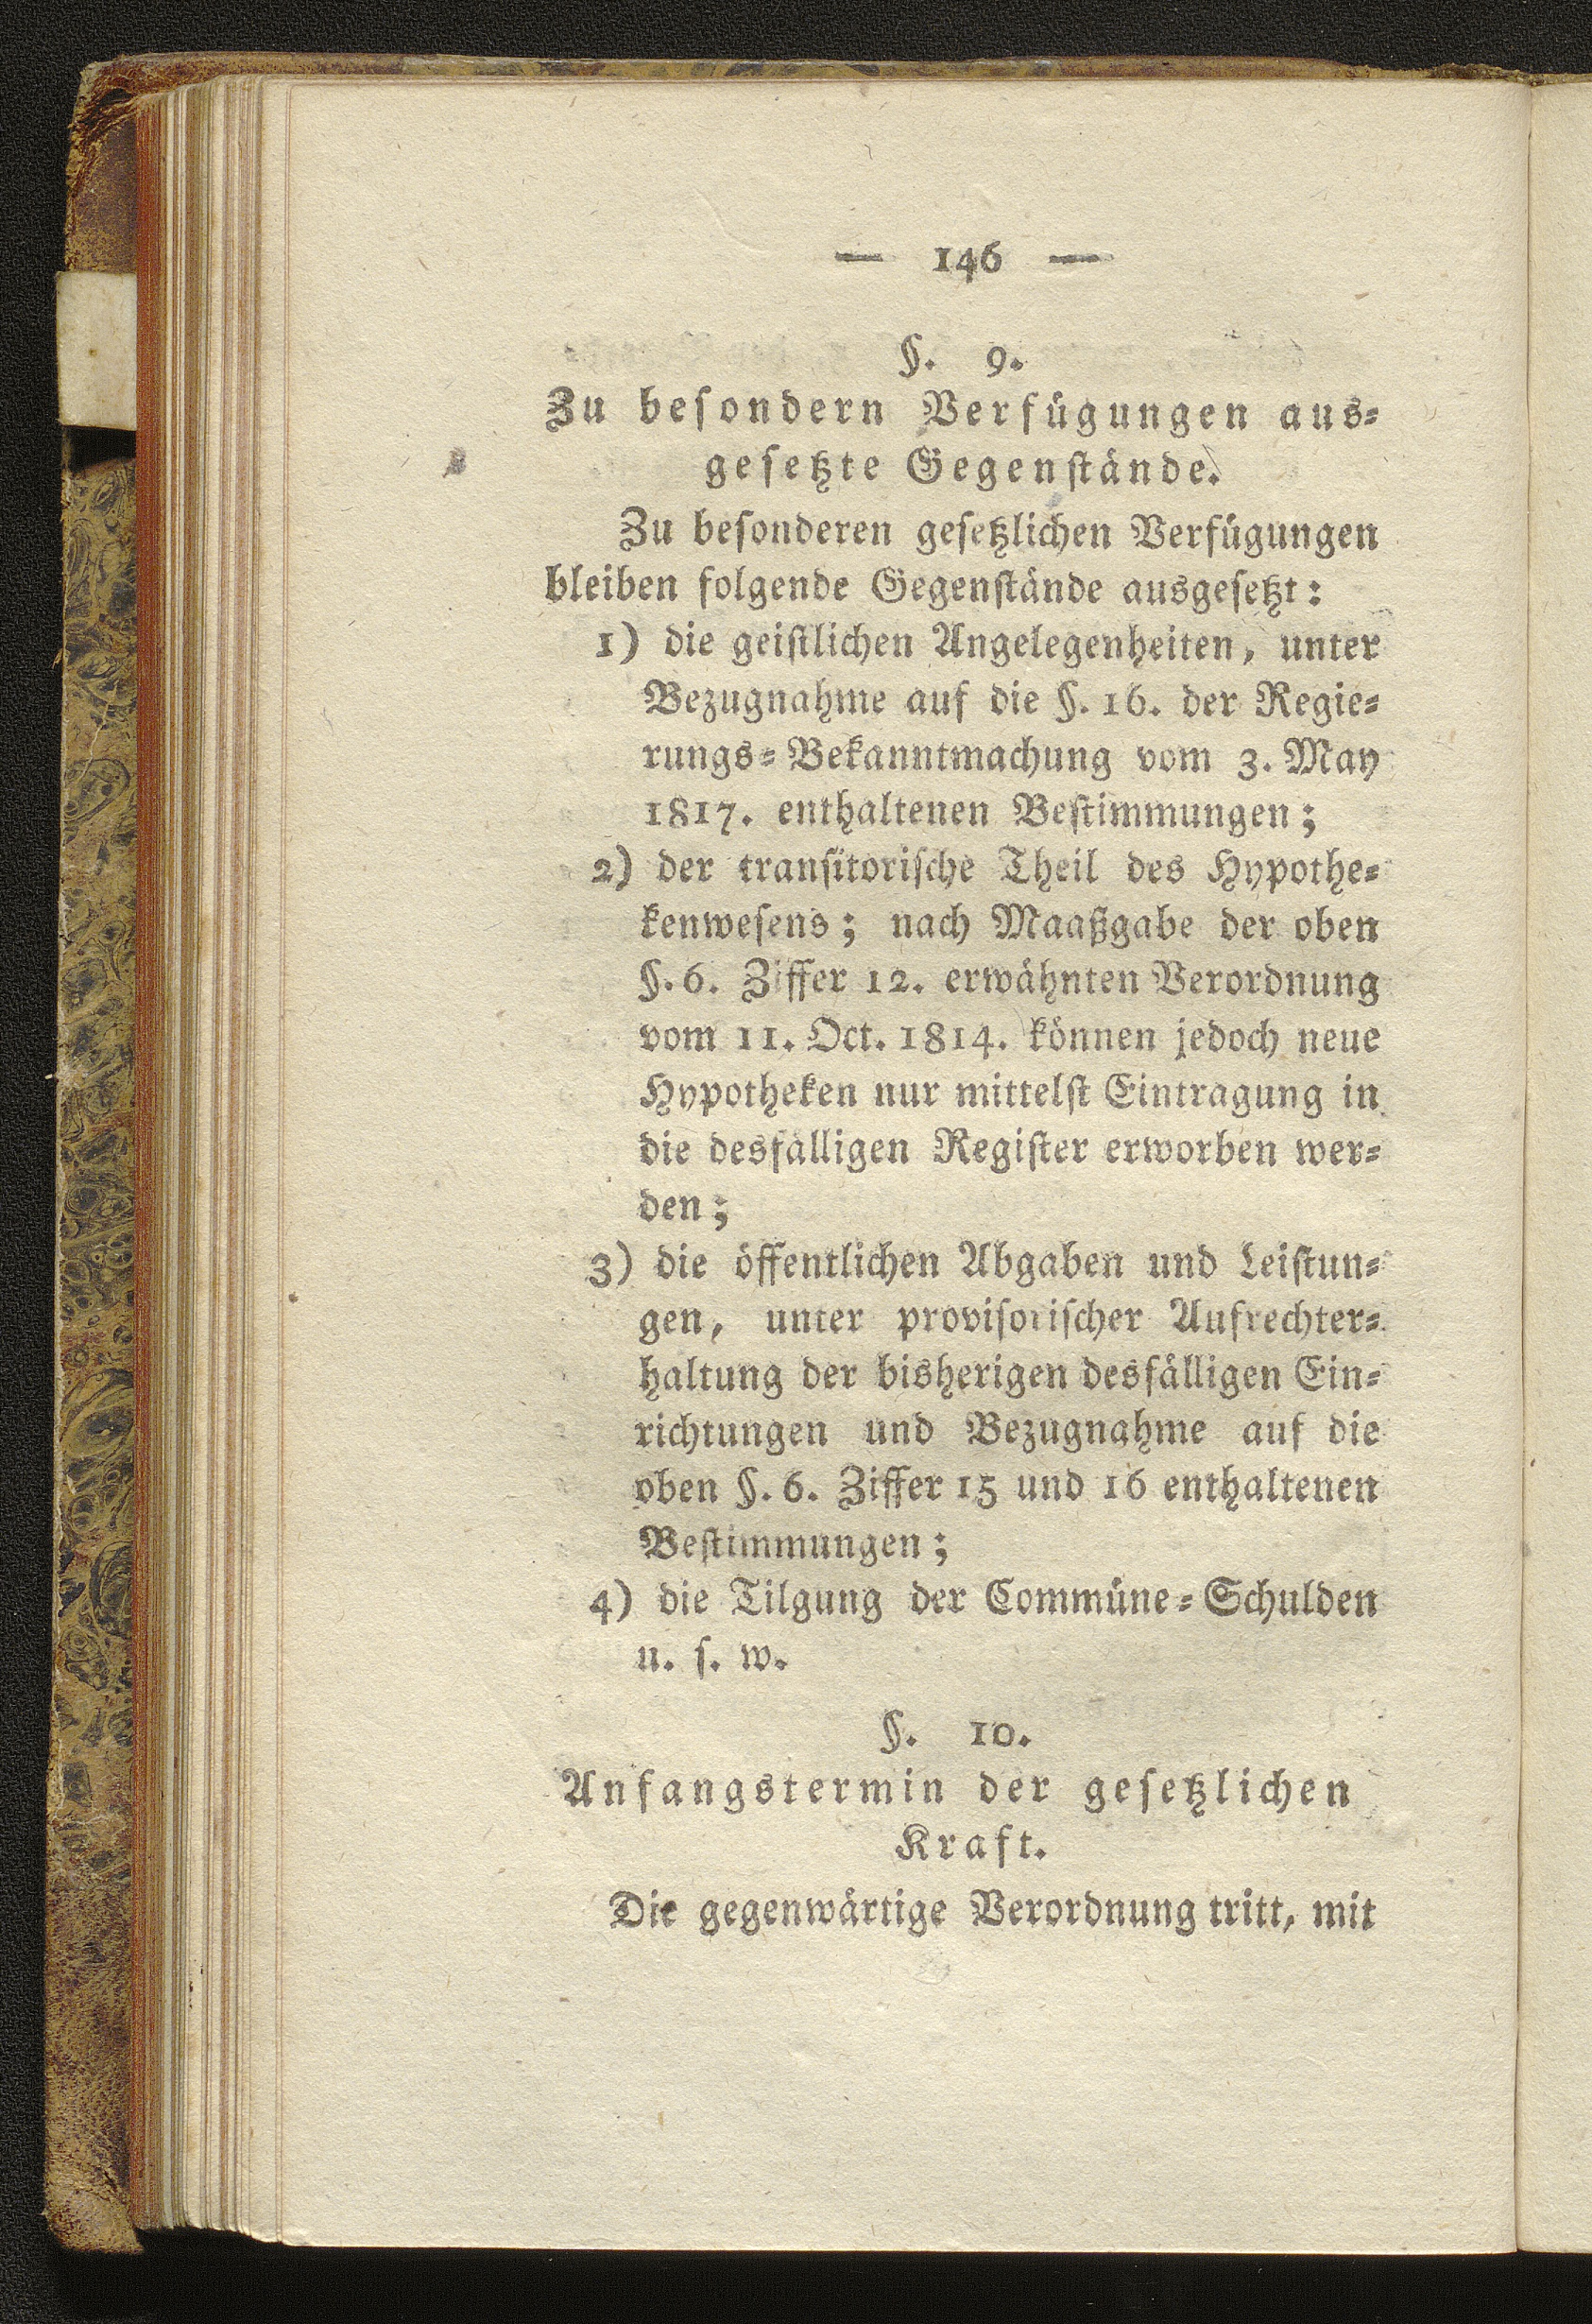 — 146 —
§. 9.
Zu beſondern Verfügungen aus⸗
geſetzte Gegenſtände.
Zu beſonderen geſetzlichen Verfügungen
bleiben folgende Gegenſtände ausgeſetzt:
1) die geiſtlichen Angelegenheiten, unter
Bezugnahme auf die §. 16. der Regie⸗
rungs⸗Bekanntmachung vom 3. May
1817. enthaltenen Beſtimmungen;
2) der tranſitoriſche Theil des Hypothe⸗
kenweſens; nach Maaßgabe der oben
§. 6. Ziffer 12. erwähnten Verordnung
vom 11. Oct. 1814. können jedoch neue
Hypotheken nur mittelſt Eintragung in
die desfälligen Regiſter erworben wer⸗
den;
3) die öffentlichen Abgaben und Leiſtun⸗
gen, unter proviſoriſcher Aufrechter⸗
haltung der bisherigen desfälligen Ein⸗
richtungen und Bezugnahme auf die
oben §. 6. Ziffer 15 und 16 enthaltenen
Beſtimmungen;
4) die Tilgung der Commüne⸗Schulden
u. ſ. w.
§. 10.
Anfangstermin der geſetzlichen
Kraft.
Die gegenwärtige Verordnung tritt, mit